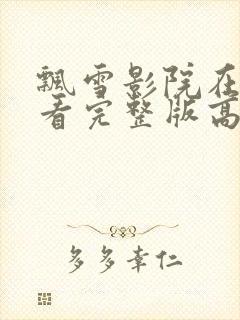 飘雪影院在
看完整版高
多多幸仁